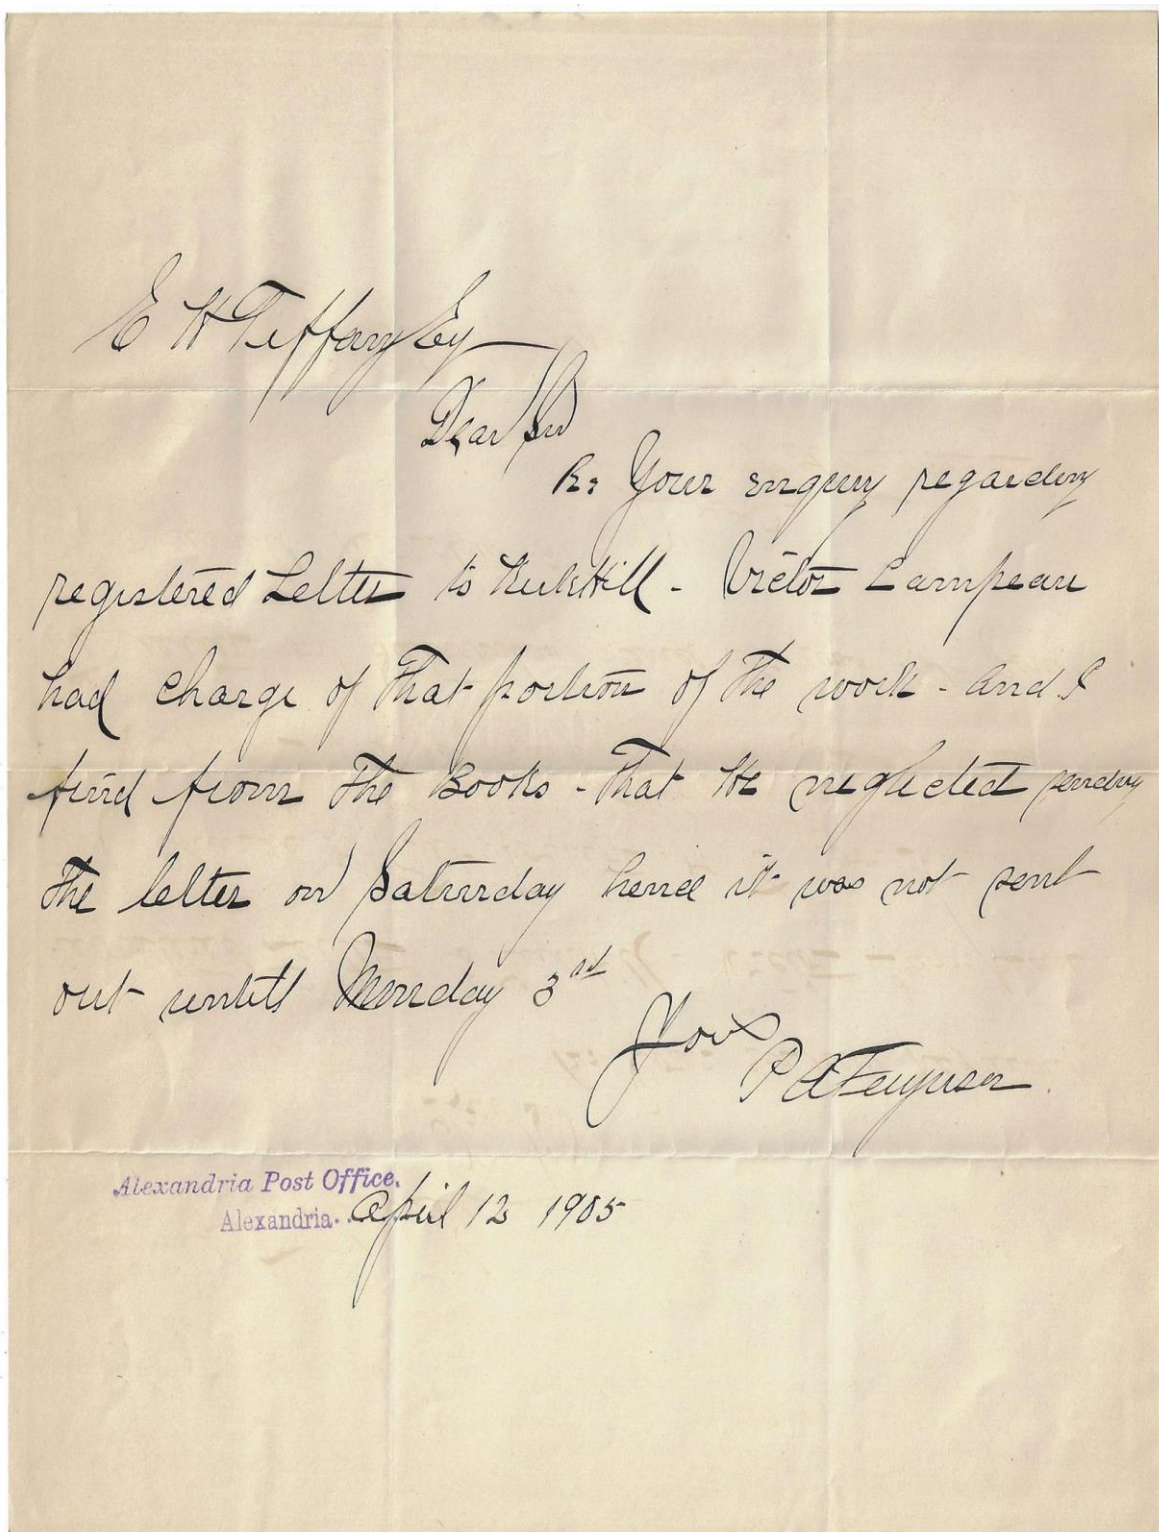 E H Tiffany Esq
Dear Sir
Re Your enquiry regarding
registered Letter to Kirk Hill - Victor Campeau
had charge of that portion of the work - and I
find from the Books - that He neglected sending
the letter on Saturday hence it was not sent
out until Monday 3rd
Yours
P A Ferguson
Alexandria Post Office.
Alexandria. April 12 1905